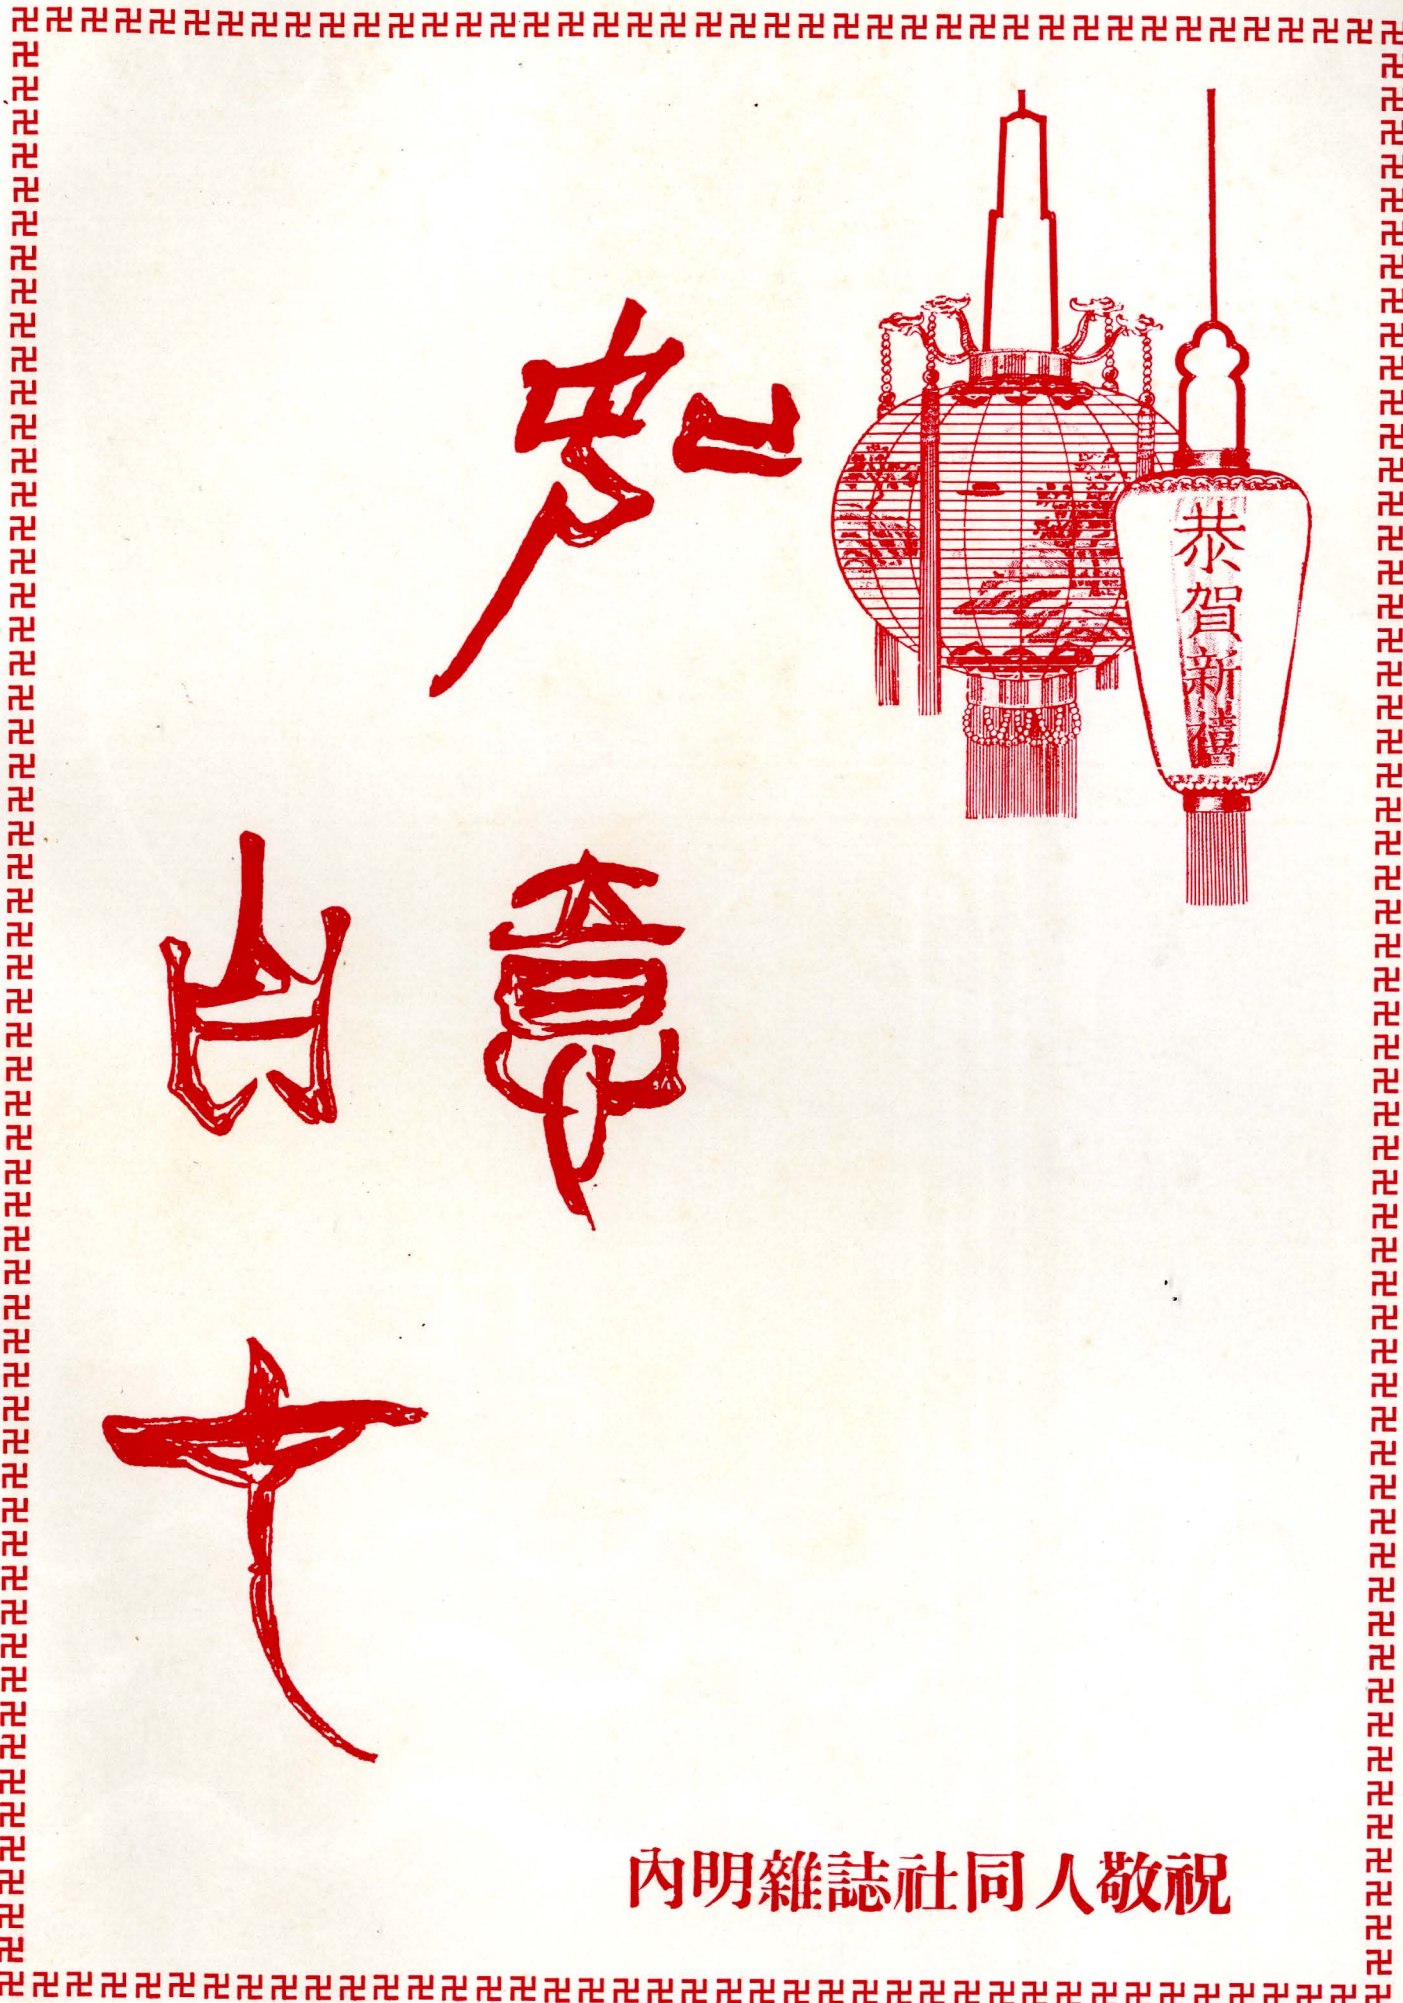 恭賀新禧
如意
自在
內明雜誌社同人敬祝